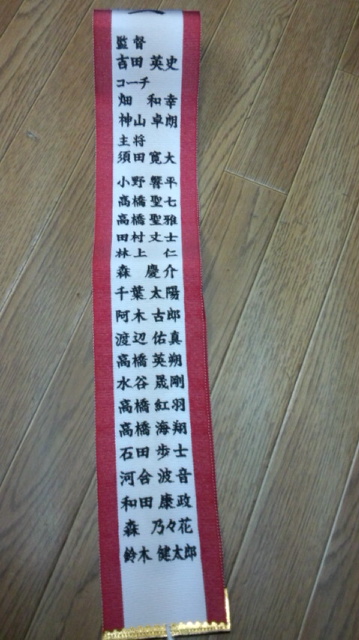 監督
吉田 英史
コーチ
畑 和幸
神山 卓朗
主将
須田 寛大
小野 響平
高橋 聖七
高橋 聖雅
田村 丈士
林上 仁
森 慶介
千葉 太陽
阿木 古郎
渡辺 佑真
高橋 英朔
水谷 晟剛
高橋 紅羽
高橋 海翔
石田 歩士
河合 波音
和田 康政
森 乃々花
鈴木 健太郎